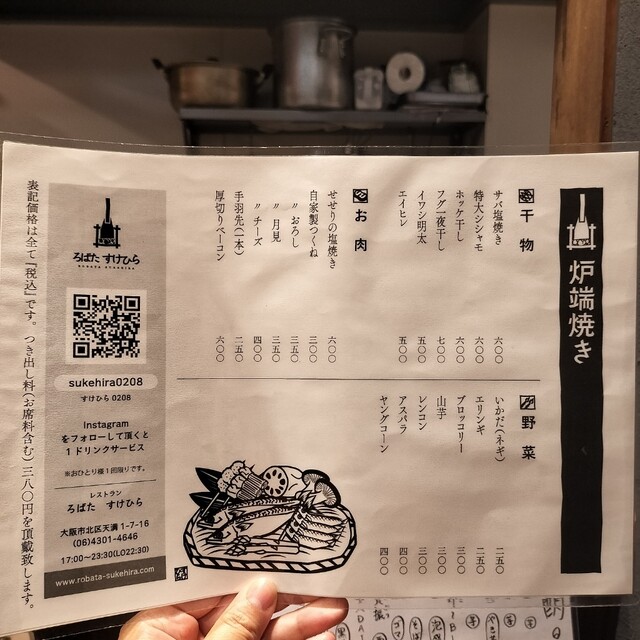 炉端焼き
干物
サバ塩焼き 六〇〇
特大シシャモ 六〇〇
ホッケ干し 六〇〇
フグ一夜干し 七〇〇
イワシ明太 五〇〇
エイヒレ 五〇〇
お肉
せせりの塩焼き 六〇〇
自家製つくね 三〇〇
〃おろし 三五〇
〃月見 三五〇
〃チーズ 四〇〇
手羽先(一本) 二五〇
厚切りベーコン 六〇〇
野菜
いかだ(ネギ) 二五〇
エリンギ 二五〇
ブロッコリー 三〇〇
山芋 三〇〇
レンコン 三〇〇
アスパラ 四〇〇
ヤングコーン 四〇〇
ろばた すけひら
ROBATA SUKEHIRA
sukehira0208
すけひら 0208
Instagram
をフォローして頂くと
1ドリンクサービス
※おひとり様1回限りです。
レストラン
ろばた すけひら
大阪市北区天満 1-7-16
(06)4301-4646
17:00〜23:30(LO22:30)
www.robata-sukehira.com
表記価格は全て『税込』です。つき出し料(お席料含む)三八〇円を頂戴致します。